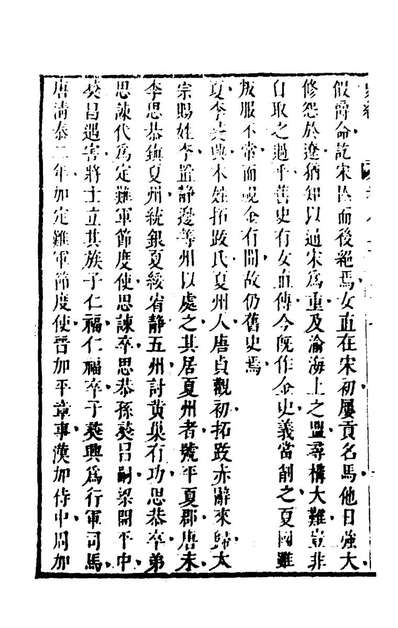 假爵命訖宋世而後絕焉女直在宋初屢貢名馬他日強大
修怨於遼猶知以通宋爲重及渝海上之盟尋構大難豈非
自取之過乎善史有女直傳今旣作金史義當削之夏國雖
叛服不常而或金有間故仍舊史焉
夏李彝興本姓拓跋氏夏州人唐貞觀初拓跋赤辭來歸太
宗賜姓李置靜邊等州以處之其居夏州者號平夏郡唐末
李思恭鎮夏州統銀夏綏宥靜五州討黃巢有功思恭卒弟
思諫代爲定難軍節度使思諫卒思恭孫彝昌嗣梁開平中
彝昌遇害將士立其族子仁福仁福卒子彝興爲行軍司馬
唐淸泰二年加定難軍節度使晉加平章事漢加侍中周加